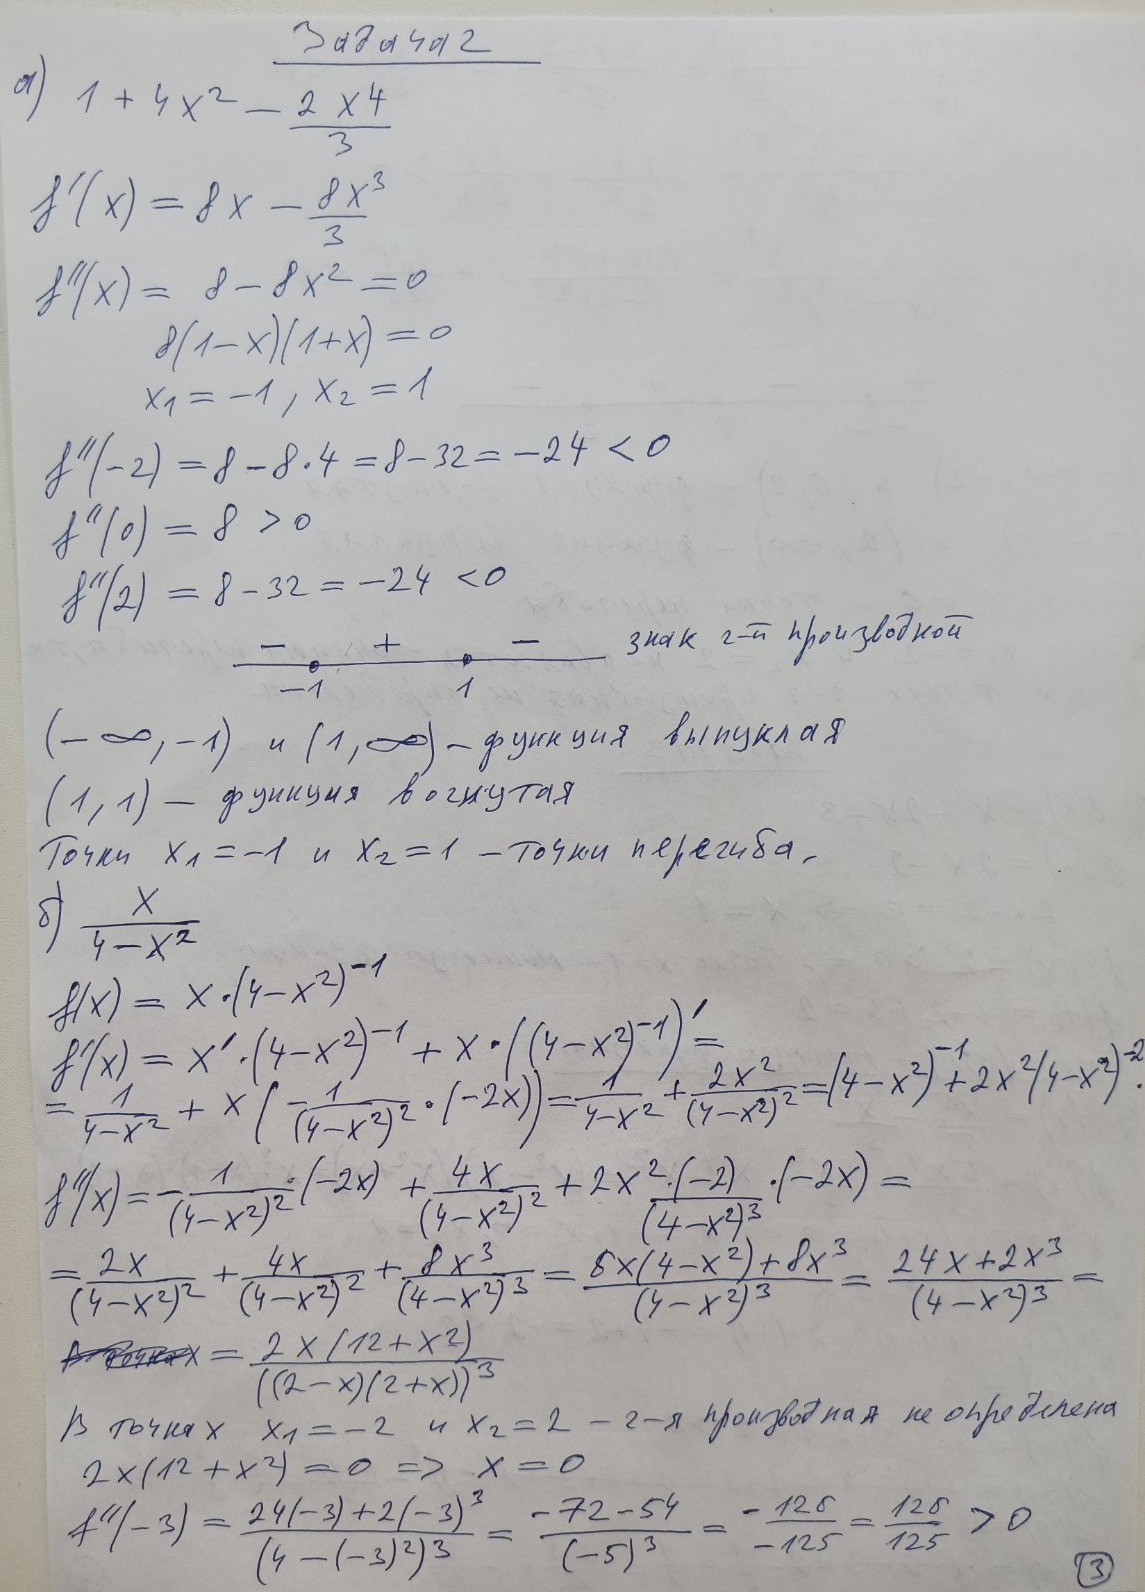 Задача 2
а) 1 + 4x² - 2x4/3
f'(x) = 8x - 8x³/3
f''(x) = 8 - 8x² = 0
8(1-x)(1+x) = 0
x₁ = -1, x₂ = 1
f''(-2) = 8 - 8·4 = 8 - 32 = -24 < 0
f''(0) = 8 > 0
f''(2) = 8 - 32 = -24 < 0
- + - знак 2-й производной
-1 1
(-∞, -1) и (1, ∞) - функция выпуклая
(1, 1) - функция вогнутая
Точки x₁ = -1 и x₂ = 1 - точки перегиба.
б) x/(4-x²)
f(x) = x·(4-x²)⁻¹
f'(x) = x'·(4-x²)⁻¹ + x·((4-x²)⁻¹)' =
= 1/(4-x²) + x(-1/(4-x²)²·(-2x)) = 1/(4-x²) + 2x²/(4-x²)² = (4-x²)⁻¹ + 2x²(4-x²)⁻².
f''(x) = -1/(4-x²)²·(-2x) + 4x/(4-x²)² + 2x²·(-2)/(4-x²)³·(-2x) =
= 2x/(4-x²)² + 4x/(4-x²)² + 8x³/(4-x²)³ = (6x(4-x²)+8x³)/(4-x²)³ = (24x+2x³)/(4-x²)³ =
= 2x(12+x²)/((2-x)(2+x))³
В точках x₁ = -2 и x₂ = 2 - 2-я производная не определена
2x(12+x²) = 0 => x = 0
f''(-3) = (24(-3)+2(-3)³)/(4-(-3)²)³ = (-72-54)/(-5)³ = -126/-125 = 126/125 > 0
3